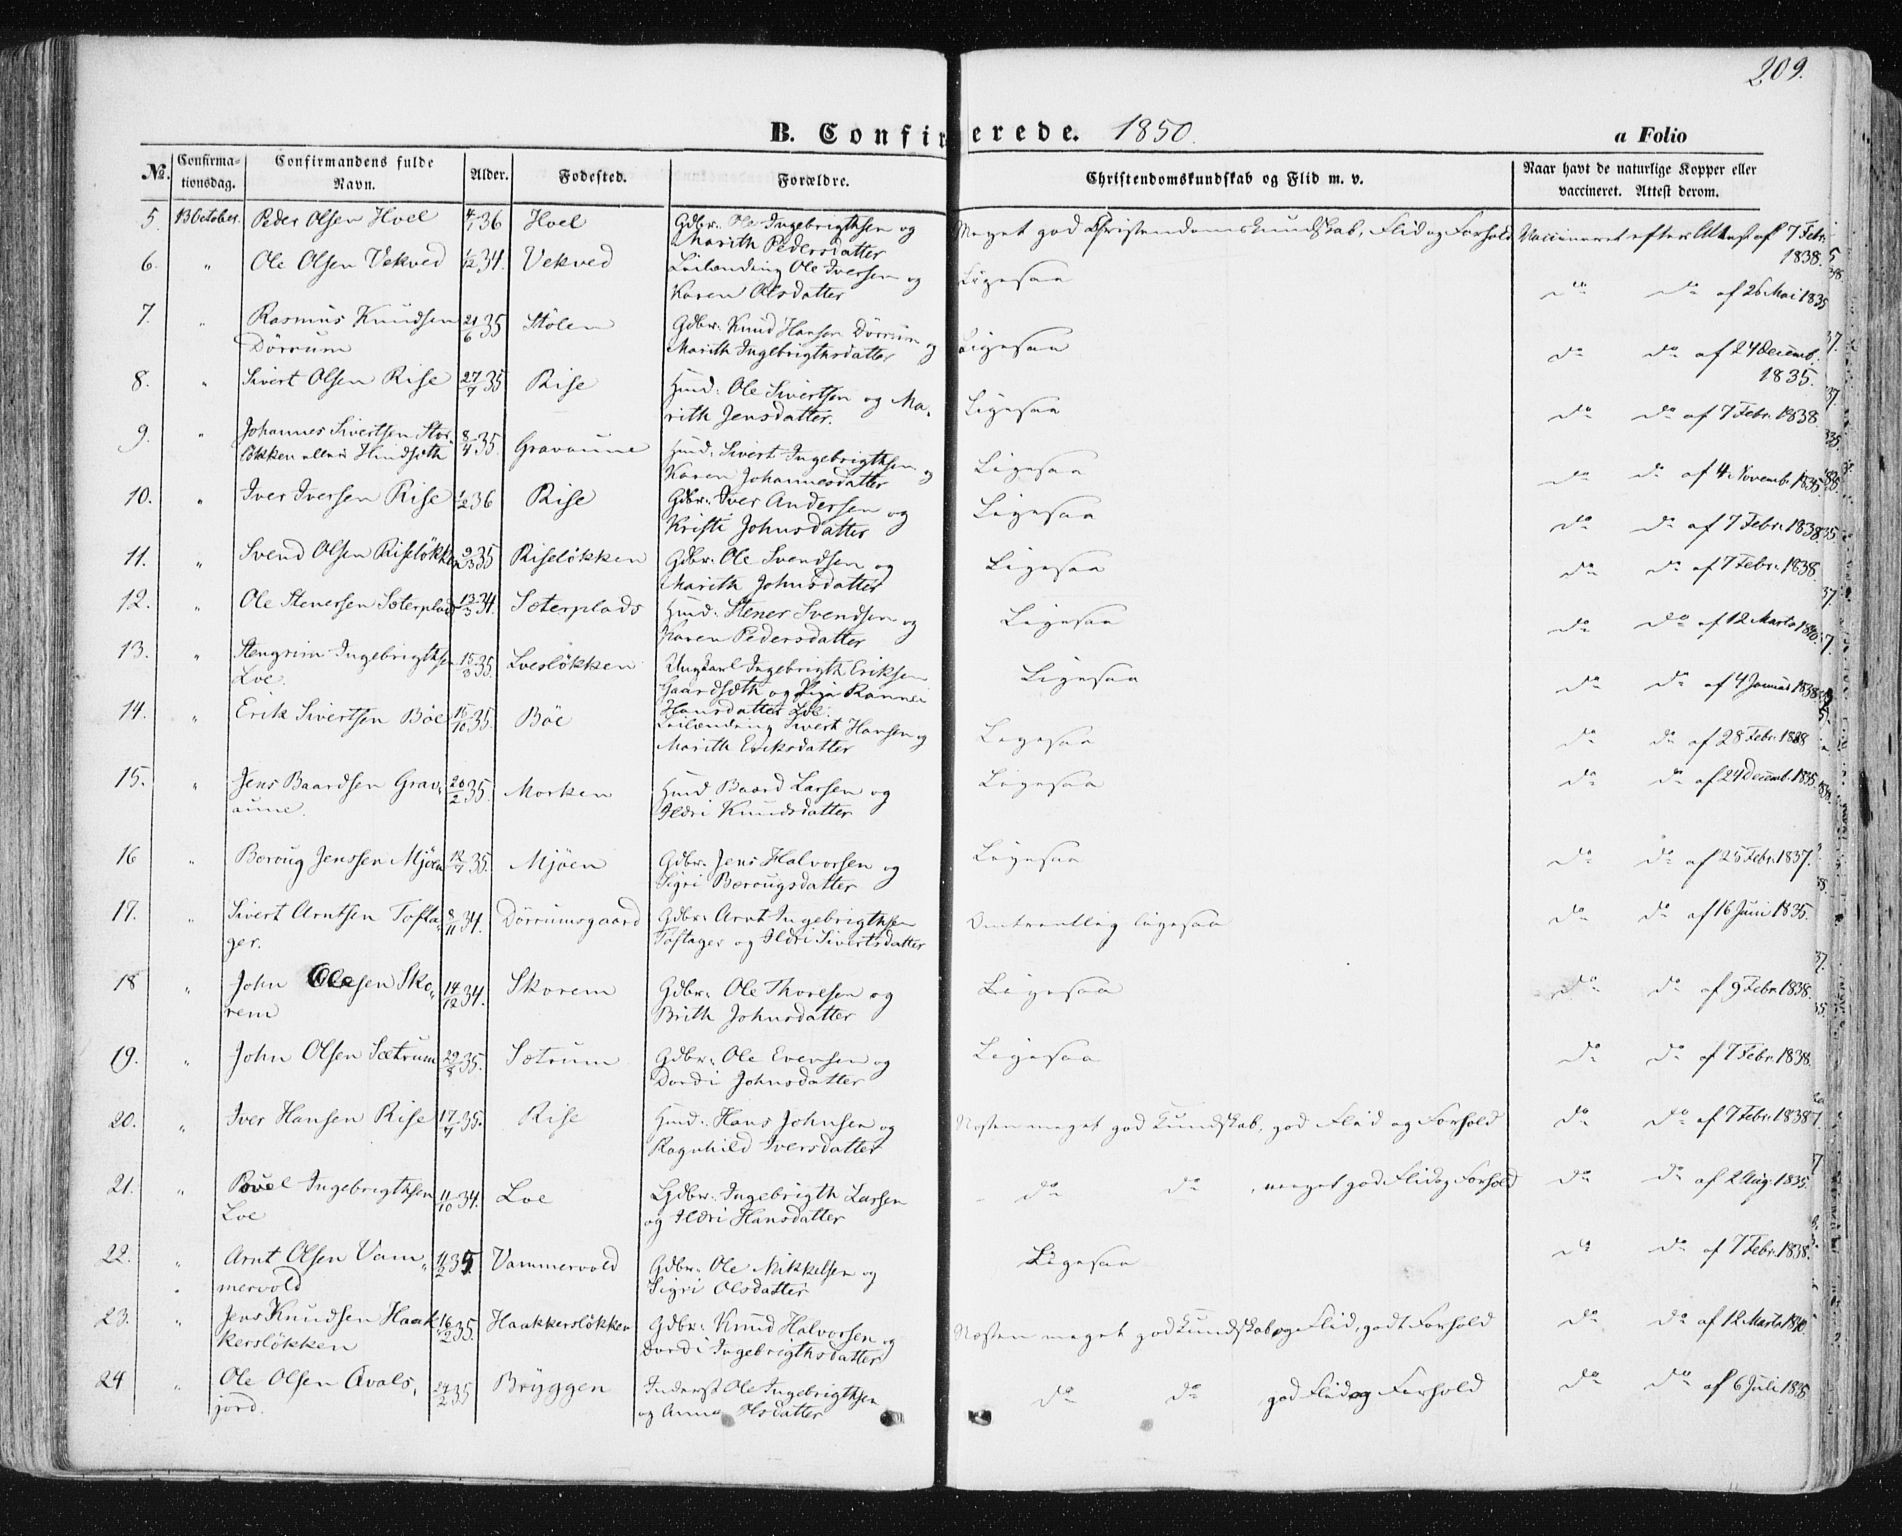 209.
B. Confirmerede. 1850.
a Folio
No. Confirmationsdag. Confirmandens fulde Navn. Alder. Fødested. Forældre. Christendomskundskab og Flid m. v. Naar havt de naturlige Kopper eller vaccineret. Attest derom.
5. 13 October. Peder Olsen Hoel 4/1 36 Hoel Gdbr: Ole Ingebrigthsen og Meget god Christendomskundskab, Flid og Forhold Vaccineret efter Attest af 7 Febr.
Marith Pedersdatter 1838.
6. " Ole Olsen Vekved 1/12 34. Vekved Leilænding Ole Iversen og Ligesaa do do af 26 Mai 1835
Karen Olsdatter
7. " Rasmus Knudsen 21/6 35 Stölen Gdbr: Knud Hansen Dörrum og Ligesaa do do af 24 Decemb.
Dörrum Marith Ingebrigthsdatter 1835.
8. " Sivert Olsen Rise 27/7 35 Rise Huusd: Ole Sivertsen og Ma- Ligesaa do do af 7 Febr. 1838.
rith Jensdatter.
9. " Johannes Sivertsen Stor- 8/4 35. Gravaune Huusd: Sivert Ingebrigthsen og Ligesaa do do af 4 Novemb. 1835
lökken eller Hindsæth Karen Johannesdatter
10. " Iver Iversen Rise 1/2 36 Rise Gdbr: Iver Andersen og Ligesaa do do af 7 Febr. 1838
Kristi Johnsdatter
11. " Svend Olsen Riselökken 2/3 35 Riselökken Gdbr: Ole Svendsen og Ligesaa do do af 7 Febr. 1838.
Marith Johnsdatter
12. " Ole Stenersen Sæterplads 13/3 34. Sæterplads Huusd: Stener Svendsen og Ligesaa do do af 12 Marts 1840.
Karen Pedersdatter
13. " Stengrim Ingebrigthsen 15/8 35. Loeslökken Ungkarl Ingebrigth Eriksen Ligesaa do do af 4 Januar 1838
Loe. Gaardsæth og Pige Rannei
Hansdatter Loe.
14. " Erik Sivertsen Böe 15/10 35. Böe Leilænding Sivert Hansen og Ligesaa do do af 28 Febr. 1838
Marith Eriksdatter
15. " Jens Baardsen Grav- 20/2 35. Morken Huusd Baard Larsen og Ligesaa do do af 24 Decemb. 1835.
aune. Ildri Knudsdatter
16 " Boroug Jenssen Mjöen 12/7 35. Mjöen Gdbr: Jens Halvorsen og Ligesaa do do af 25 Febr. 1837.
Sigri Borougsdatter
17. " Sivert Arntsen Tofta- 8/11 34. Dörrumsgaard Gdbr: Arnt Ingebrigthsen Omtrentlig ligesaa do do af 16 Juni 1835.
ger. Toftager og Ildri Sivertsdatter
18 " John Olesen Sko- 14/12 34. Skorem Gdbr: Ole Thoresen og Ligesaa do do af 9 Febr. 1838.
rem Brith Johnsdatter
19. " John Olsen Sætrum 29/8 35. Sætrum Gdbr: Ole Evensen og Ligesaa do do af 7 Febr. 1838.
Dordi Johnsdatter
20. " Iver Hansen Rise 17/7 35. Rise Huusd: Hans Johnsen og Næsten meget god Kundskab, god Flid og Forhold do do af 7 Febr. 1838
Ragnhild Iversdatter
21. " Poul Ingebrigthsen 11/10 34. Loe Gdbr: Ingebrigth Larsen do do , meget god Flid og Forhold do do af 2 Aug. 1835.
Loe og Ildri Hansdatter
22. " Arnt Olsen Vam- 11/2 35 Vammervold Gdbr: Ole Mikkelsen og Ligesaa do do af 7 Febr. 1838.
mervold Sigri Olsdatter
23. " Jens Knudsen Haak- 16/2 35. Haakkerslökken Gdbr: Knud Halvorsen og Næsten meget god Kundskab og Flid, godt Forhold do do af 12 Marts 1840.
kerslökken Dordi Ingebrigthsdatter
24 " Ole Olsen Qvals- 24/2 35 Bryggen Inderst Ole Ingebrigthsen do do god Flid og Forhold do do af 6 Juli 1835
jord. og Anne Olsdatter